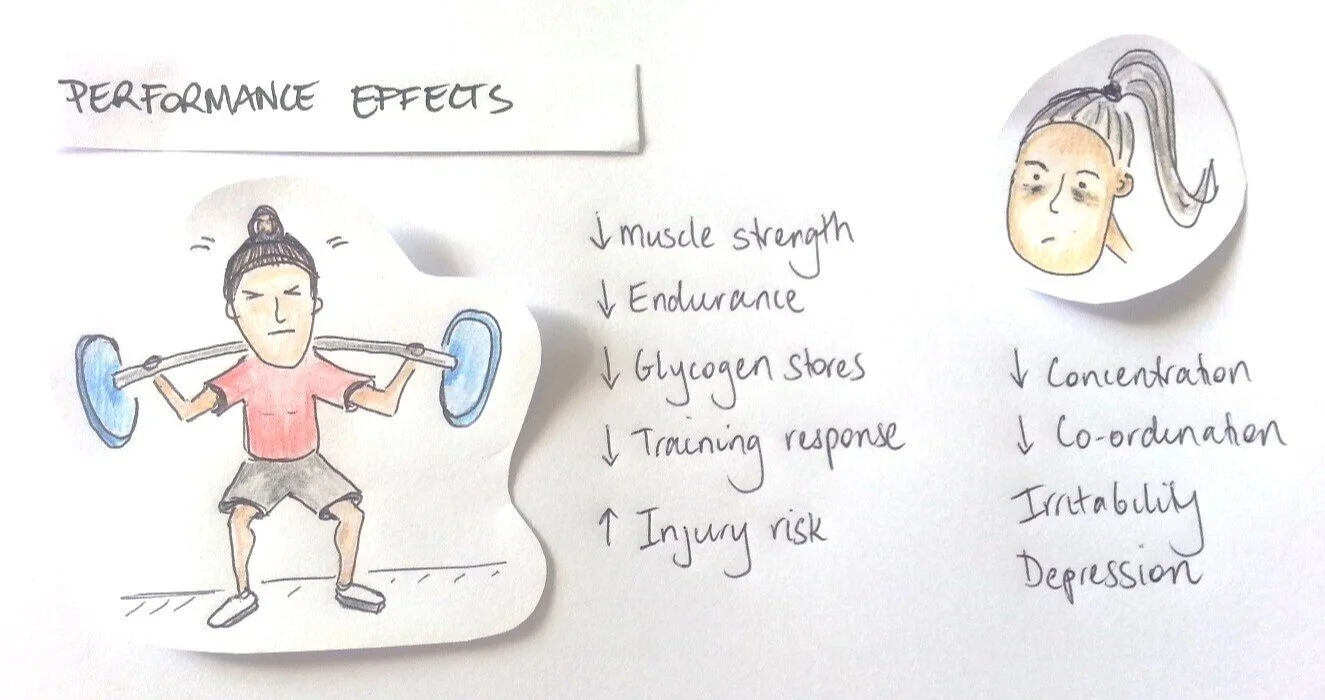 PERFORMANCE EFFECTS
↓ Muscle strength
↓ Endurance
↓ Glycogen stores
↓ Training response
↑ Injury risk
↓ Concentration
↓ Co-ordination
Irritability
Depression